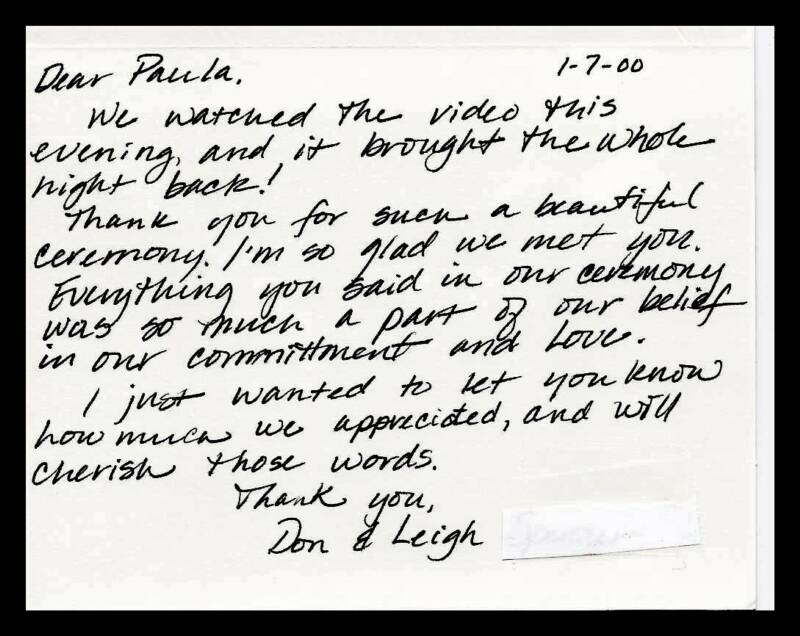 Dear Paula, 1-7-00
We watched the video this
evening, and it brought the whole
night back!
Thank you for such a beautiful
ceremony. I'm so glad we met you.
Everything you said in our ceremony
was so much a part of our belief
in our committment and love.
I just wanted to let you know
how much we appreciated, and will
cherish those words.
Thank you,
Don & Leigh